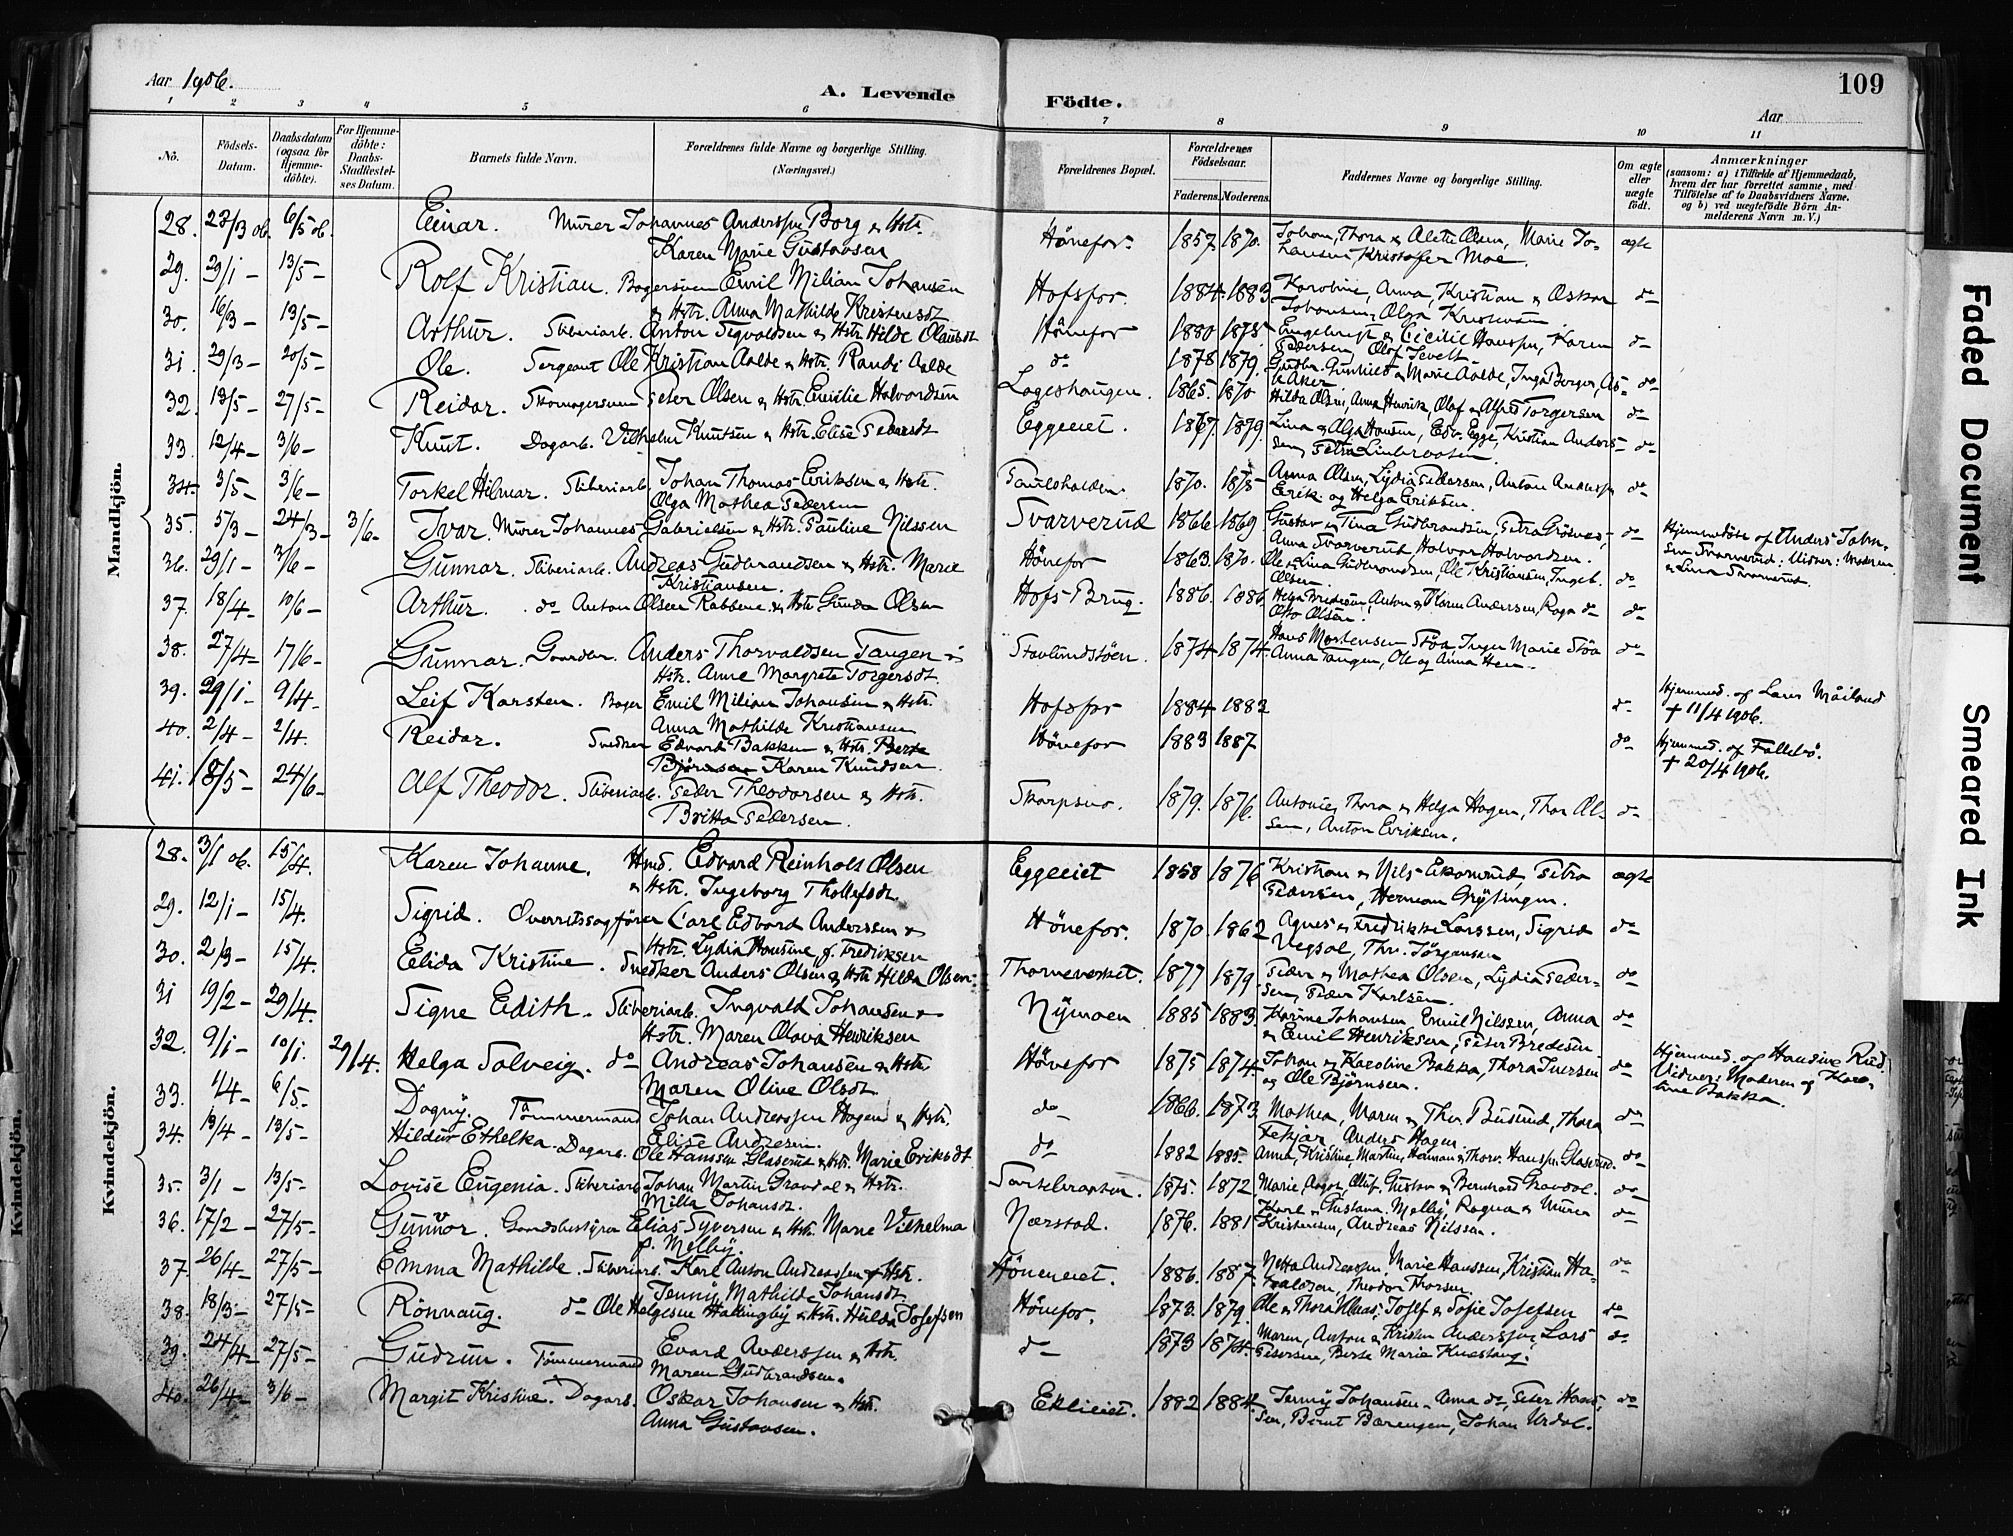 Aar 1906.
A. Levende Födte.
Aar
109
1 2 3 4 5 6 7 8 9 10 11
No.
Födsels-Datum.
Daabsdatum (ogsaa for Hjemme-döbte).
For Hjemme-döbte: Daabs-Stadfæstel-ses Datum.
Barnets fulde Navn.
Forældrenes fulde Navne og borgerlige Stilling. (Næringsvei.)
Forældrenes Bopæl.
Forældrenes Födselsaar.
Faderens. Moderens.
Faddernes Navne og borgerlige Stilling.
Om ægte eller uægte födt.
Anmærkninger (saasom: a) i Tilfælde af Hjemmedaab, hvem der har forrettet samme, med Tilföielse af to Daabsvidners Navne. og b) ved uægtefödte Börn An-melderens Navn m. V.)
Mandkjön.
28. 23/3 06. 6/5 06. Einar. Murer Johannes Anderssen Borg & Hstr. Hönefos. 1857. 1870. Johan, Thora & Alette Olsen, Marie Jo- ægte
Karen Marie Gustavsen hansen, Kristofer Moe.
29. 29/1 - 13/5 - Rolf Kristian. Bagersvend Emil Milian Johansen Hofsfos. 1884. 1883 Karoline, Anna, Kristian & Oskar do
& Hstr. Anna Mathilde Kristensdt. Johansen, Olga Kristensen
30. 16/3 - 13/5 - Arthur. Sliberiarb. Anton Sigvaldsen & Hstr. Hilde Olausdt. Hönefos 1880 1875 Engebregt & Cicilie Hanssen, Karen do
Pedersen, Olof Tevelt
31. 29/3 - 20/5 - Ole. Sergeant Ole Kristian Aalde & Hstr. Randi Aalde do 1878 1879. Gudbr. Gunhild & Marie Aalde, Inga Berger, do
32. 13/5 - 27/5 - Reidar. Skomagersvend Peter Olsen & Hstr. Emilie Halvordsen Lageshaugen. 1865. 1870 Hilda Olsen, Anna Henrik, Olaf & Alfred Torgersen do
33. 12/4 - 3/6 - Knut. Dagarb. Vilhelm Knutsen & Hstr. Elise Pedersdt Eggeeiet. 1867. 1879. Lina & Olga Hansen, Edv. Egge, Kristian Anders- do
sen, Petra Linbraaten.
34. 3/5 - 3/6 - Torkel Hilmar. Sliberiarb. Johan Thomas Eriksen & Hstr. Paulsholden. 1870. 1875 Anna Olsen, Lydia Pedersen, Anton Anderssen do
Olga Mathea Pedersen Erik og Helga Eriksen.
35. 5/3 - 24/3 - 3/6 - Ivar. Murer Johannes Gabrielsen & Hstr. Pauline Nilssen Svarverud 1866 1869 Gustav & Tina Gudbrandsen, Petra do Hjemmedöbt af Anders John-
Anna Svarverud, Halvor Halvordsen. sen Svarverud. Vidner: Moderen
& Lina Svarverud.
36. 29/1 - 3/6 - Gunnar. Sliberiarb. Andreas Gudbrandsen & Hstr. Marie Hönefos 1863. 1870. Ole & Lina Gudbrandsen, Ole Kristiansen, Ingeb. do
Kristiansen. Olsen.
37. 18/4 - 10/6 - Arthur. do Anton Olsen Rabbene & Hstr. Gunda Olsen Hofs-Brug. 1886. 1886 Helga Anton & Karen Anderssen, Raga do do
Otto Olsen.
38. 27/4 - 17/6 - Gunnar. Gaardbr. Anders Thorvaldsen Tangen & Stavlundstöen. 1874 1874 Hans Mortensen Stöa, Inger Marie Stöa do
Hstr. Anne Margrete Torgersdt. Anna Tangen, Ole og Anna Hen.
39. 29/1 - 9/4 - Leif Karsten. Bager Emil Milian Johansen & Hstr. Hofsfos 1884 1883 do Hjemmed. af Lars Mæland
Anna Mathilde Kristiansen + 11/4 1906.
40. 2/4 - 2/4. Reidar. Snedker Edvard Bakken & Hstr. Berte Hönefos 1883 1887 do Hjemmed. af Fallebö.
Björnsen Karen Knudsen. + 20/4 1906.
41. 18/5 - 24/6 - Alf Theodor. Sliberiarb. Peder Theodorsen & Hstr. Skarpsno. 1879. 1876. Antonie, Thora & Helga Hagen, Thor Ol- do
Britta Pedersen. sen, Anton Eriksen.
Kvindekjön.
Kvindekjön.
28. 3/1 06. 15/4. Karen Johanne. Hmd. Edvard Reinholt Olsen Eggeeiet 1858 1876 Kristian & Nils Ekornrud, Petra ægte
& Hstr. Ingeborg Thollefsdt. Pedersen, Herman Gryting.
29. 12/1 - 15/4. Sigrid. Overretssagförer Carl Edvard Anderssen & Hönefos. 1870. 1862 Agnes & Fredrikke Larssen, Sigrid do
Hstr. Lydia Hansine f. Fredriksen Vegsal, Thv. Jörgensen
30. 2/3 - 15/4. Elida Kristine. Snedker Anders Olsen & Hstr. Hilda Olsen. Thorneverket. 1877 1879 Peder & Mathea Olsen, Lydia Peder- do
sen, Peder Karlsen.
31 19/2 - 29/4. Signe Edith. Sliberiarb. Ingvald Johansen & Nymoen 1885 1883. Karine Johansen, Emil Nilssen, Anna do
Hstr. Maren Olava Henriksen & Emil Henriksen, Peter Bredesen
32. 9/1 - 10/1. 29/4. Helga Solveig. do Andreas Johansen & Hstr. Hönefos 1875 1874. Johan & Karoline Bakka, Thora Iversen do Hjemmed. af Handine Rud.
Maren Olive Olsdt. og Ole Björnsen. Vidner: Moderen og Karo-
line Bakka.
33. 1/4 - 6/5 - Dagny. Tömmermand Johan Anderssen Hagen & Hstr. do 1866. 1873. Mathea, Maren & Thor Busund, Thora do
Elise Andresen. Fekjar, Anders Hagen
34. 13/4 - 13/5 - Hildur Ethelka. Dagarb. Ole Hanssen Glaserud & Hstr. Marie Eriksdt. do 1882 1885. Anna, Kristine, Martin, Herman & Thorv. Hanssen Glaserud. do
35. 3/1 - 13/5 - Lovise Eugenia. Sliberiarb. Johan Martin Gravdal & Hstr. 1875. 1872. Marie, Aagot, Oluf, Gustav & Bernhard Gravdal. do
Milla Johansdt.
36. 17/2 - 27/5 - Gunvor. Gaardsbestyrer Elias Syversen & Hstr. Marie Vilhelma Nærstad. 1876. 1881 Karl & Gustava Melby, Ragna & Maren do
f. Melby. Kristensen, Andreas Nilssen.
37. 26/4 - 27/5 - Emma Mathilde. Sliberiarb. Karl Anton Andreassen & Hstr. Höneneiet. 1886. 1887 Netta Andreassen, Marie Hanssen, Kristian Ha- do
Jenny Mathilde Johansdt. raldsen, Theodor Thorsen.
38. 18/3 - 27/5 - Rönnaug. do Ole Helgesen Hallingby & Hstr. Hulda Josefsen Hönefos. 1873. 1879. Ole & Thora Klaas, Josef & Sofie Josefsen do
39. 24/4 - 27/5 - Gudrun. Tömmermand Evard Anderssen & Hstr. do 1873 1874. Maren, Anton & Kristen Anderssen, Lars do
Maren Gudbrandsen. Petersen, Berte Marie Knestang.
40. 26/4 - 3/6 - Margit Kristine. Dagarb. Oskar Johansen & Hstr. Eklieiet. 1882 1884. Jenny Johansen, Anna do, Peter Hans- do
Anna Gustavsen. sen, Bernt Bærengen, Johan Urdal.
Faded Document
Smeared Ink